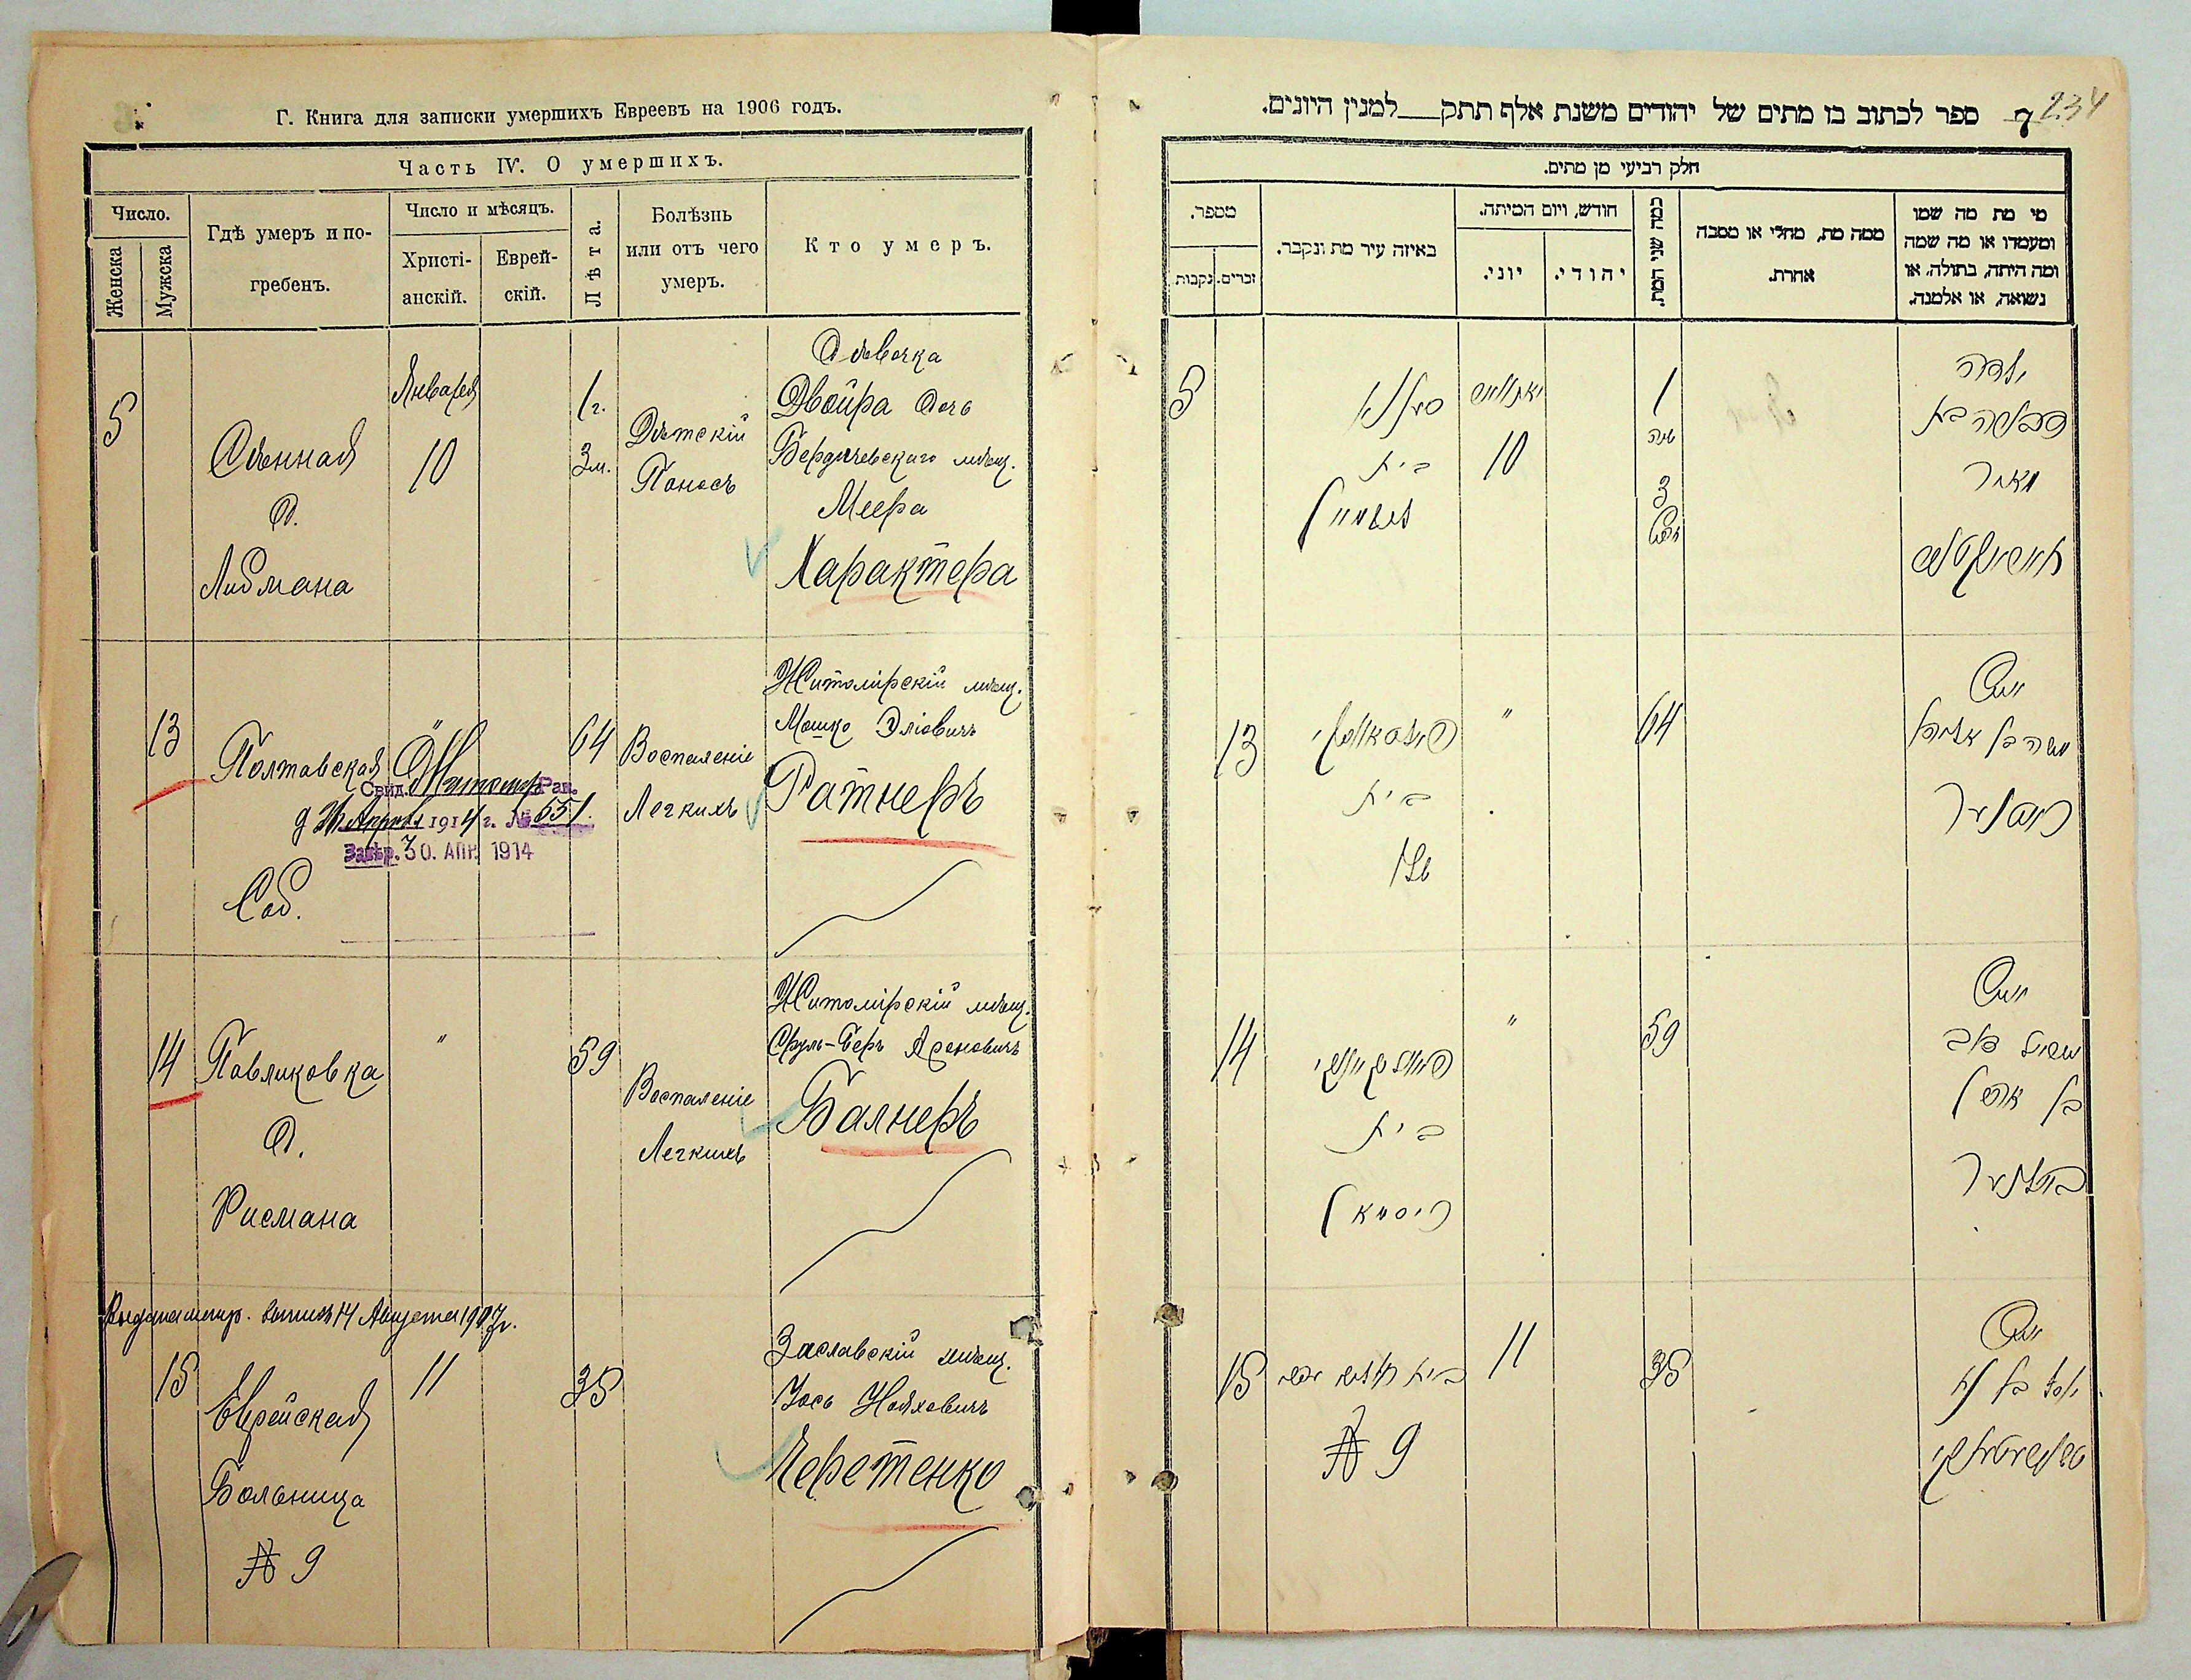 Г. Книга для записки умершихъ Евреевъ на 1906 годъ.
Часть IV. О умершихъ.
Число.
Женска
Мужска
Гдѣ умеръ и по-
гребенъ.
Число и мѣсяцъ.
Христі-
анскій.
Еврей-
скій.
Лѣта.
Болѣзнь
или отъ чего
умеръ.
Кто умеръ.
5
Сѣнная
д.
Либмана
Января
10
1 г.
3 м.
Дѣтскій
Поносъ
Дѣвочка
Двойра дочь
Бердичевскаго мѣщ.
Меера
Характера
13
Полтавская
Соб.
"
Свид. Житомир. Рав.
1914 г. № 651.
Завѣр. 30. АПР. 1914
64
Воспаленіе
Легкихъ
Житомірскій мѣщ.
Мошко Эліовичъ
Ратнеръ
14
Павликовка
д.
Рисмана
"
59
Воспаленіе
Легкихъ
Житомірскій мѣщ.
Сруль-Беръ
Балнеръ
14 Августа 1907 г.
15
Еврейская
Больница
№ 9
11
35
Заславскій мѣщ.
Іось Нояховичъ
Черетенко
234
ספר לכתוב בו מתים של יהודים משנת אלף תתק למנין היונים.
חלק רביעי מן מתים.
מספר.
זכרים.
נקבות
באיזה עיר מת ונקבר.
חודש, ויום המיתה.
יוני.
יהודי.
כמה שני המת.
ממה מת, מחלי או מסבה
אחרת.
מי מת מה שמו
ומעמדו או מה שמה
ומה היתה, בתולה, או
נשואה, או אלמנה.
5
בית
10
1
שנה
3
ילדה
מאיר
13
בית
"
64
איש
משה בן
ראטנער
14
בית
ריסמאן
"
59
איש
בן
באלנער
15
בית
№ 9
11
35
איש
יוסף בן נח